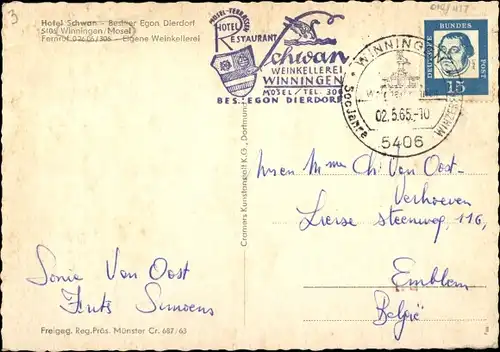 3
Hotel Schwan - Besitzer Egon Dierdorf
5406 Winningen/Mosel
Fernruf 02606/306 - Eigene Weinkellerei
MOSEL-TERRASSE
HOTEL
RESTAURANT
Schwan
WEINKELLEREI
WINNINGEN
MOSEL/TEL. 306
BES.: EGON DIERDORF
WINNINGEN
500 Jahre
02.5.65.-10
5406
DEUTSCHE BUNDES POST
15
Cramers Kunstanstalt K.G., Dortmund
Ch Van Oost-
Verhoeven
Lierse steenweg, 116,
Emblem
België
Sonie Van Oost
Simoens
Freigeg. Reg.-Präs. Münster Cr. 687/63